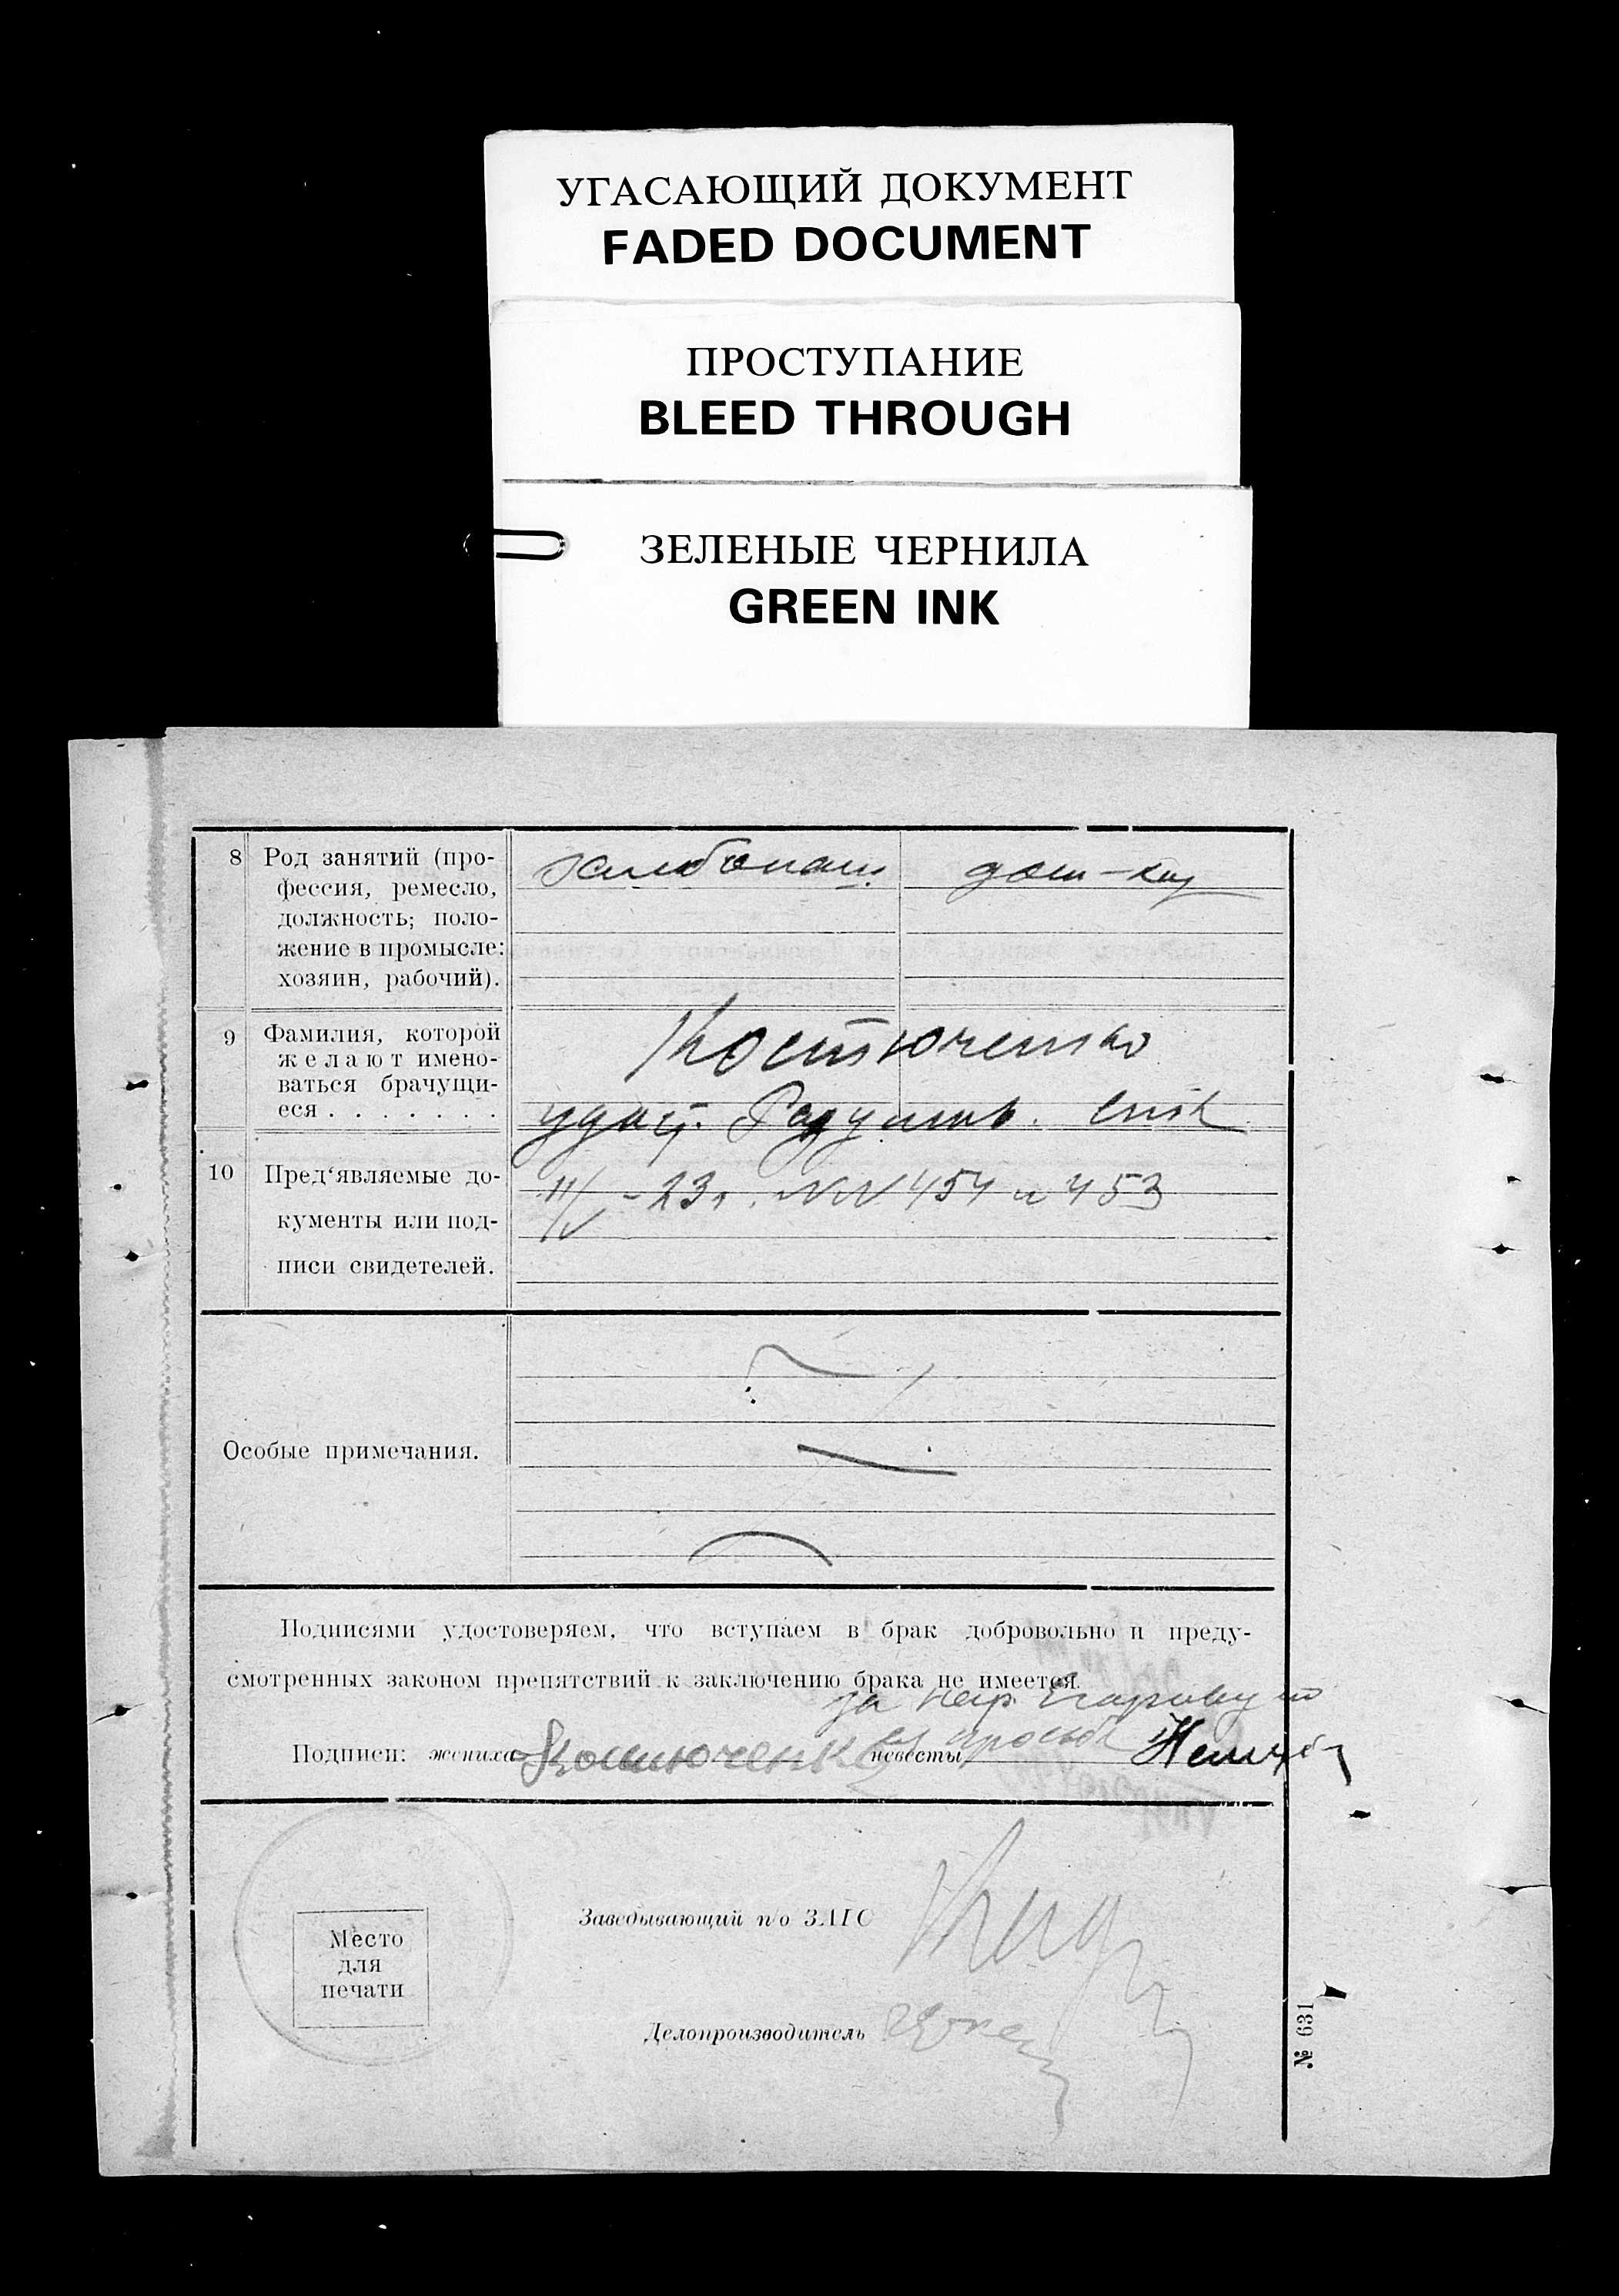 УГАСАЮЩИЙ ДОКУМЕНТ
FADED DOCUMENT
ПРОСТУПАНИЕ
BLEED THROUGH
ЗЕЛЕНЫЕ ЧЕРНИЛА
GREEN INK
8 Род занятий (про-
фессия, ремесло,
должность; поло-
жение в промысле:
хозяин, рабочий).
хлебопаш. дом-хоз
9 Фамилия, которой
желают имено-
ваться брачущи-
еся . . . . . . .
Костюченко
10 Пред'являемые до-
кументы или под-
писи свидетелей.
удост.
11/IV – 23 г. NN 454 и 453
Особые примечания.
Подписями удостоверяем, что вступаем в брак добровольно и преду-
смотренных законом препятствий к заключению брака не имеется.
за
Подписи: жениха Костюченко невесты
Заведывающий п/о ЗАГС
Место
для
печати
Делопроизводитель
№ 631